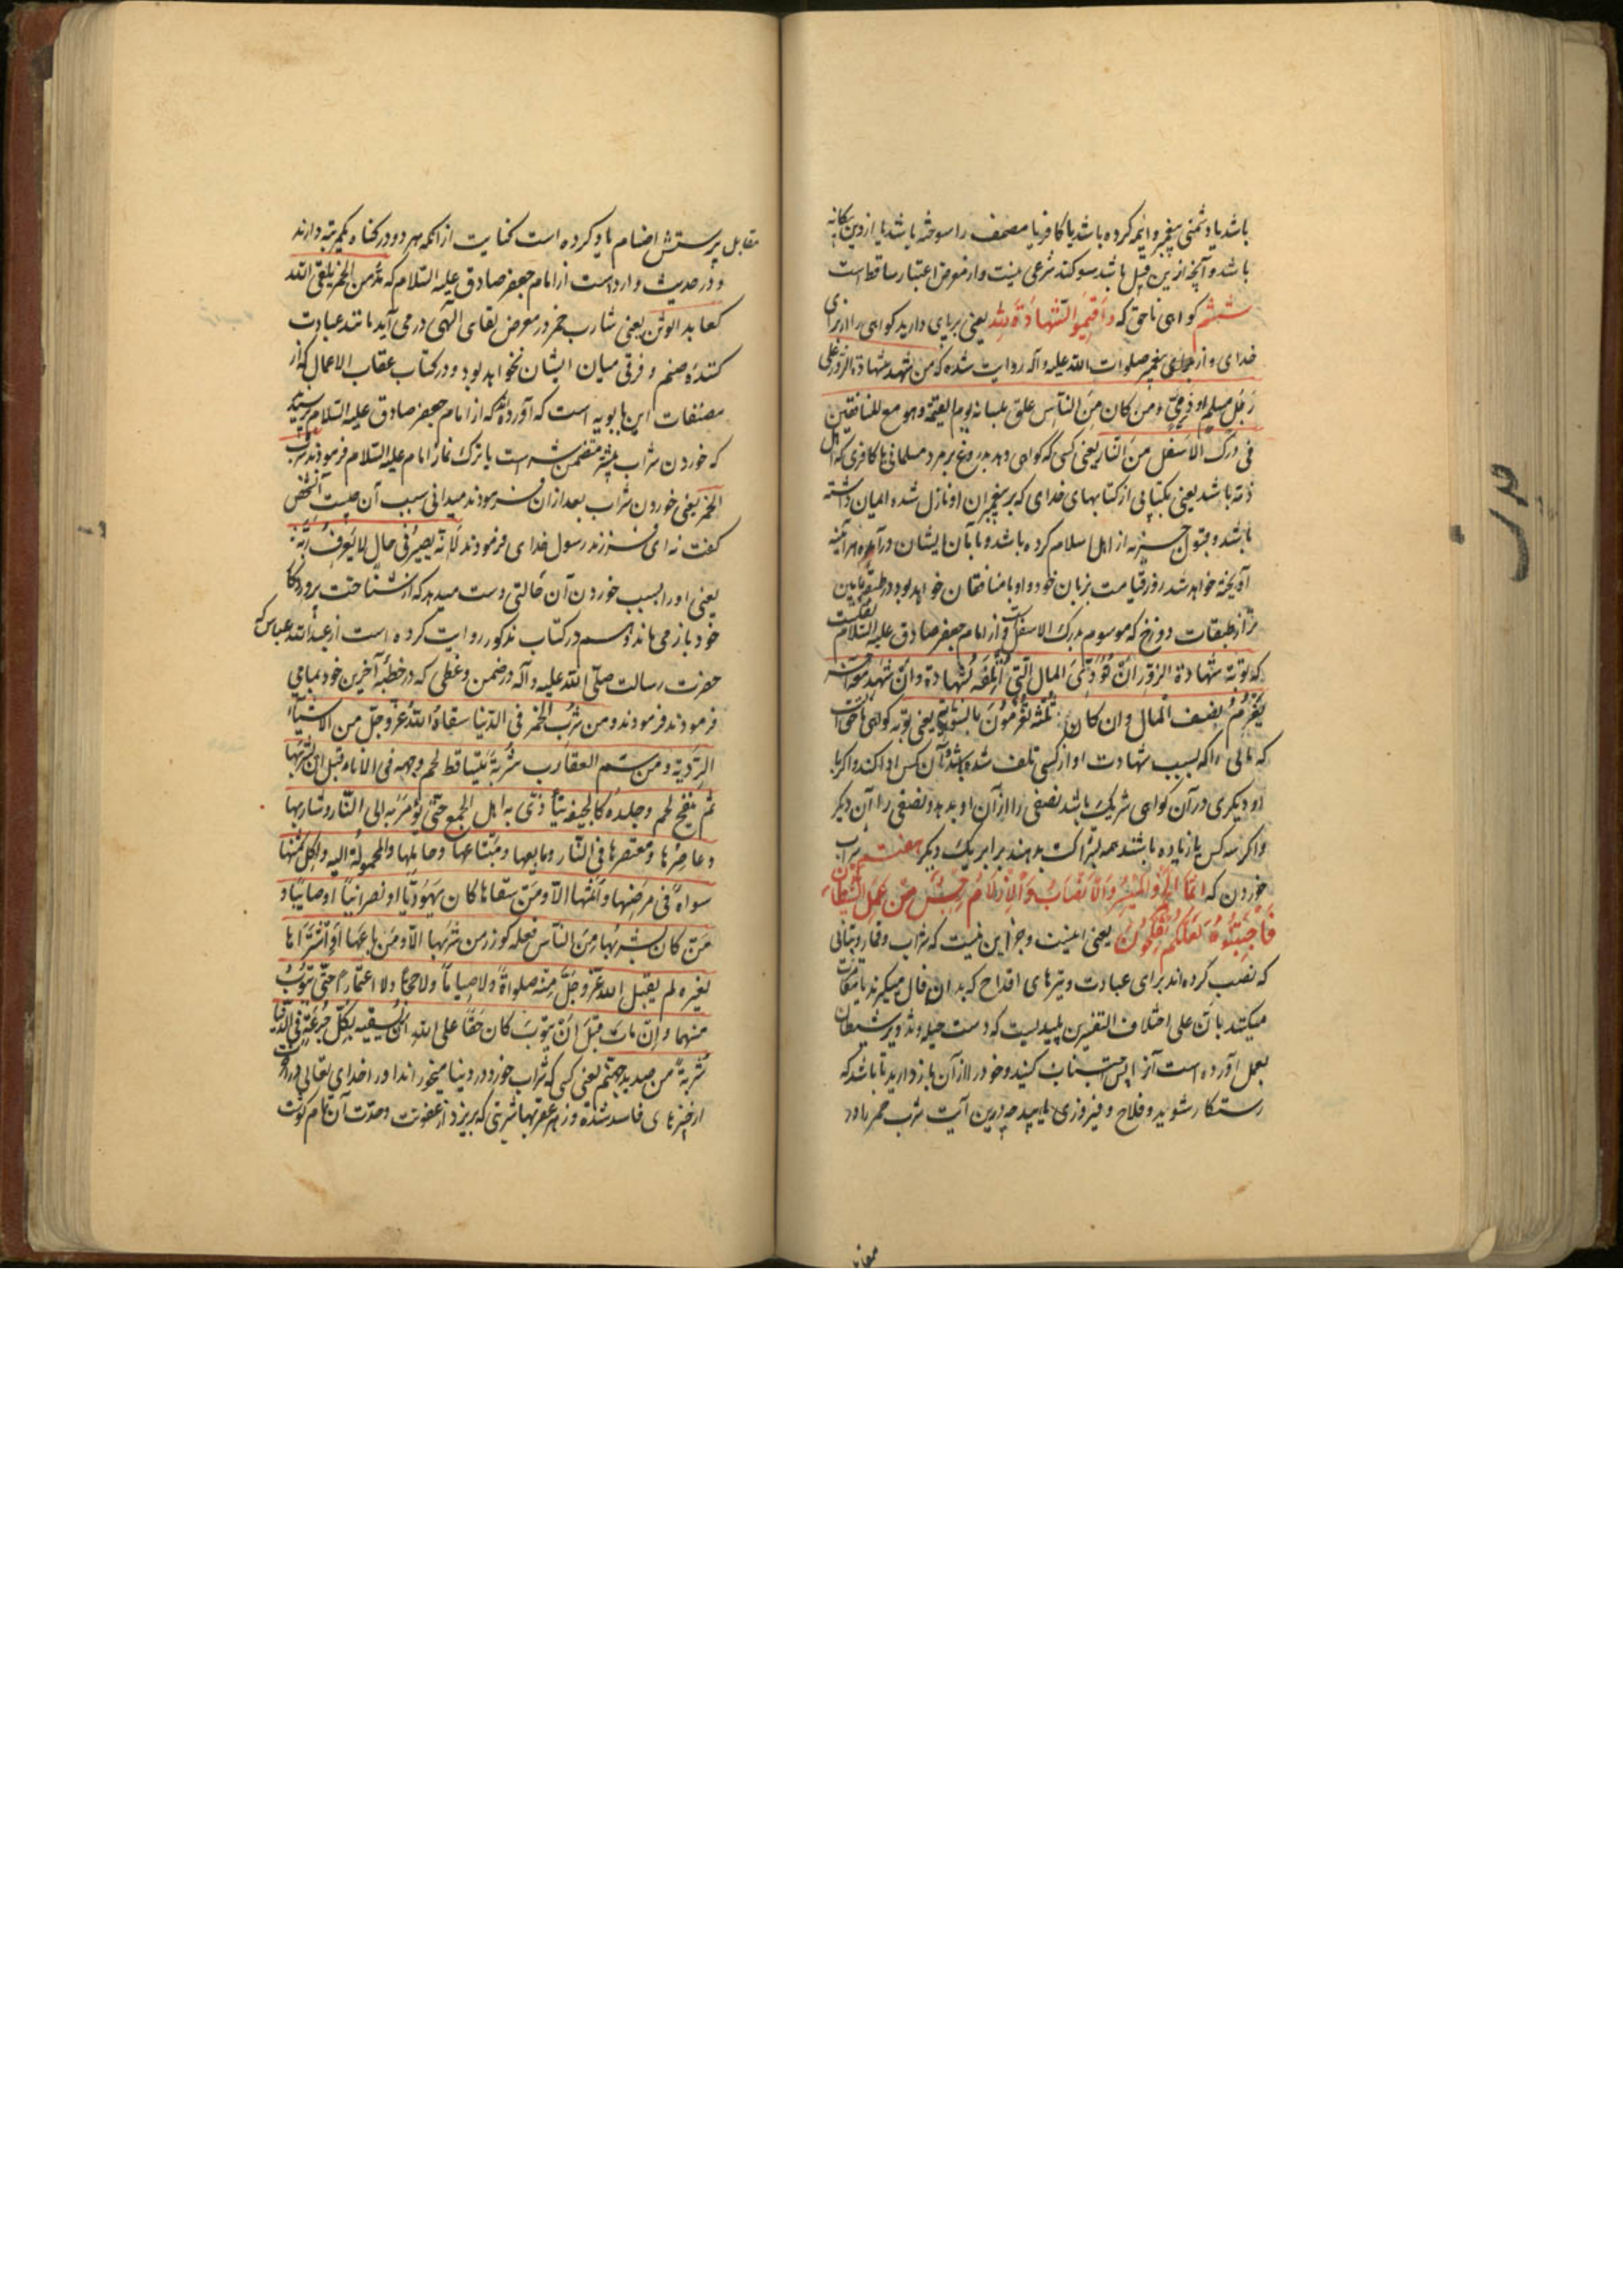 باشد یا دشمنی پیغمبر و ائمه کرده باشد یا کافر یا مصحف را سوخته باشد یا از دین بیگانه
باشد و آنچه از این قبیل باشد سوکند شرعی نیست و از معرض اعتبار ساقط است
ششم کواهی ناحق که و اقیموا الشهادة لله یعنی برپای دارید کواهی را از برای
خدای و از پیغمبر صلوات الله علیه و آله روایت شده که من شهد شهادة الزور علی
رجل مسلم او ذمی و من کان من الناس علق بلسانه یوم القیمة و هو مع المنافقین
فی درک الاسفل من النار یعنی کسی که کواهی دهد بدروغ بر مرد مسلمانی یا کافری که اهل
ذمه باشد یعنی بکتابی از کتابهای خدای که بر پیغمبران او نازل شده ایمان داشته
باشد و قبول جزیه از اهل اسلام کرده باشد و با آبان ایشان درآمده هر آینه
آویخته خواهد شد روز قیامت بزبان خود و او با منافقان خواهد بود در طبقه پایین
تر از طبقات دوزخ که موسوم بدرک الاسفل است و از امام جعفر صادق علیه السلام نقلست
که توبة شهادة الزور ان تؤدی المال الذی اتلفه بشهادة و ان شهد معه آخر
یغرم نصف المال و ان کان ثلثه تغرمون بالسویة یعنی توبه کواهی ناحق آنست
که مالی را که بسبب شهادت او از کسی تلف شده باشد بآن کس ادا کند و اکر با
او دیکری در آن کواهی شریک باشد نصفی را از آن او بدهد و نصفی را آن دیکر
و اکر سه کس یا زیاده باشند همه بشراکت بدهند برابر یک دیکر هفتم شراب
خوردن که انما الخمر و المیسر و الانصاب و الازلام رجس من عمل الشیطان
فاجتنبوه لعلکم تفلحون یعنی اینست و جز این نیست که شراب و قمار و بتانی
که نصب کرده‌اند برای عبادت و تیرهای اقداح که بدان فال میکیرند یا مقامرت
میکنند بآن علی اختلاف التفسیرین پلیدیست که دست حیله و تزویر شیطان
بعمل آورده است آنرا پس اجتناب کنید و خود را از آن باز دارید تا باشد که
رستکار شوید و فلاح و فیروزی یابید چه درین آیت شرب خمر را در
مقابل پرستش اصنام یاد کرده است کنایت از آنکه هر دو در کناه یکمرتبه دارند
و در حدیث وارد است از امام جعفر صادق علیه السلام که مدمن الخمر یلقی الله
کعابد الوثن یعنی شارب خمر در معرض لقای الهی در می آید مانند عبادت
کننده صنم و فرقی میان ایشان نخواهد بود و در کتاب عقاب الاعمال که از
مصنفات ابن بابویه است که آورده که از امام جعفر صادق علیه السلام پرسیدند
که خوردن شراب بیشتر متضمن شر است یا ترک نماز امام علیه السلام فرمودند شرب
الخمر یعنی خوردن شراب بعد از آن فرمودند میدانی سبب آن چیست آن شخص
کفت نه ای فرزند رسول خدای فرمودند لانه یصیر فی حال لا یعرف ربه
یعنی او را بسبب خوردن آن حالتی دست میدهد که از شناخت پروردکار
خود باز می ماند و هم در کتاب مذکور روایت کرده است از عبدالله عباس که
حضرت رسالت صلی الله علیه و آله در ضمن وعظی که در خطبه آخرین خود
فرمودند فرمودند و من شرب الخمر فی الدنیا سقاه الله عز و جل من
و من سم العقارب شربة یتساقط لحم وجهه فی الاناء قبل ان یشربها
ثم یفتح لحم و جلده کالجیفة یتأذی به اهل الجمع حتی یؤمر به الی النار و شاربها
و عاصرها و معتصرها فی النار و بایعها و مبتاعها و حاملها و المحمولة الیه و آکل ثمنها
سواء فی و اثمها الا و من سقاها کان یهودیا او نصرانیا او صابیا او
من کان یشربها من الناس فعلیه کوزر من شربها الا و من باعها او اشتراها
لغیره لم یقبل الله عز و جل منه صلوة و لا صیاما و لا حجا و لا اعتمارا حتی یتوب
منهما و ان مات قبل ان یتوب کان حقا علی الله ان یسقیه بکل جرعة فی الدنیا
شربة من صدید جهنم یعنی کسی که شراب خورد در دنیا میخوراند او را خدای تعالی در آخرت
از چیزهای فاسد شده و زهر عقربها شربتی که بریزد از عفونت و حدت آن تمام کوشت
مقابل